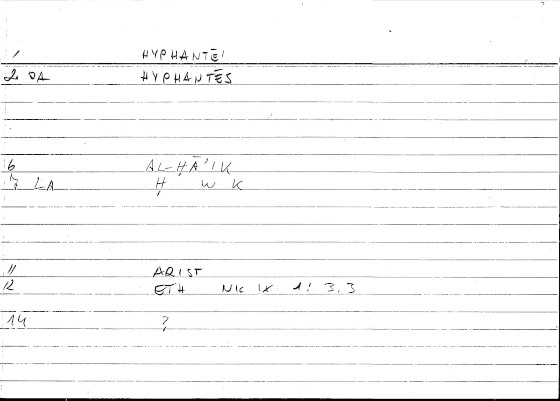 1 HYPHANTĒI
2 DA HYPHANTĒS
6 AL-ḤĀ'IK
7 LA Ḥ W K
11 ARIST
12 ETH NIC IX 1: 3.3
14 ?